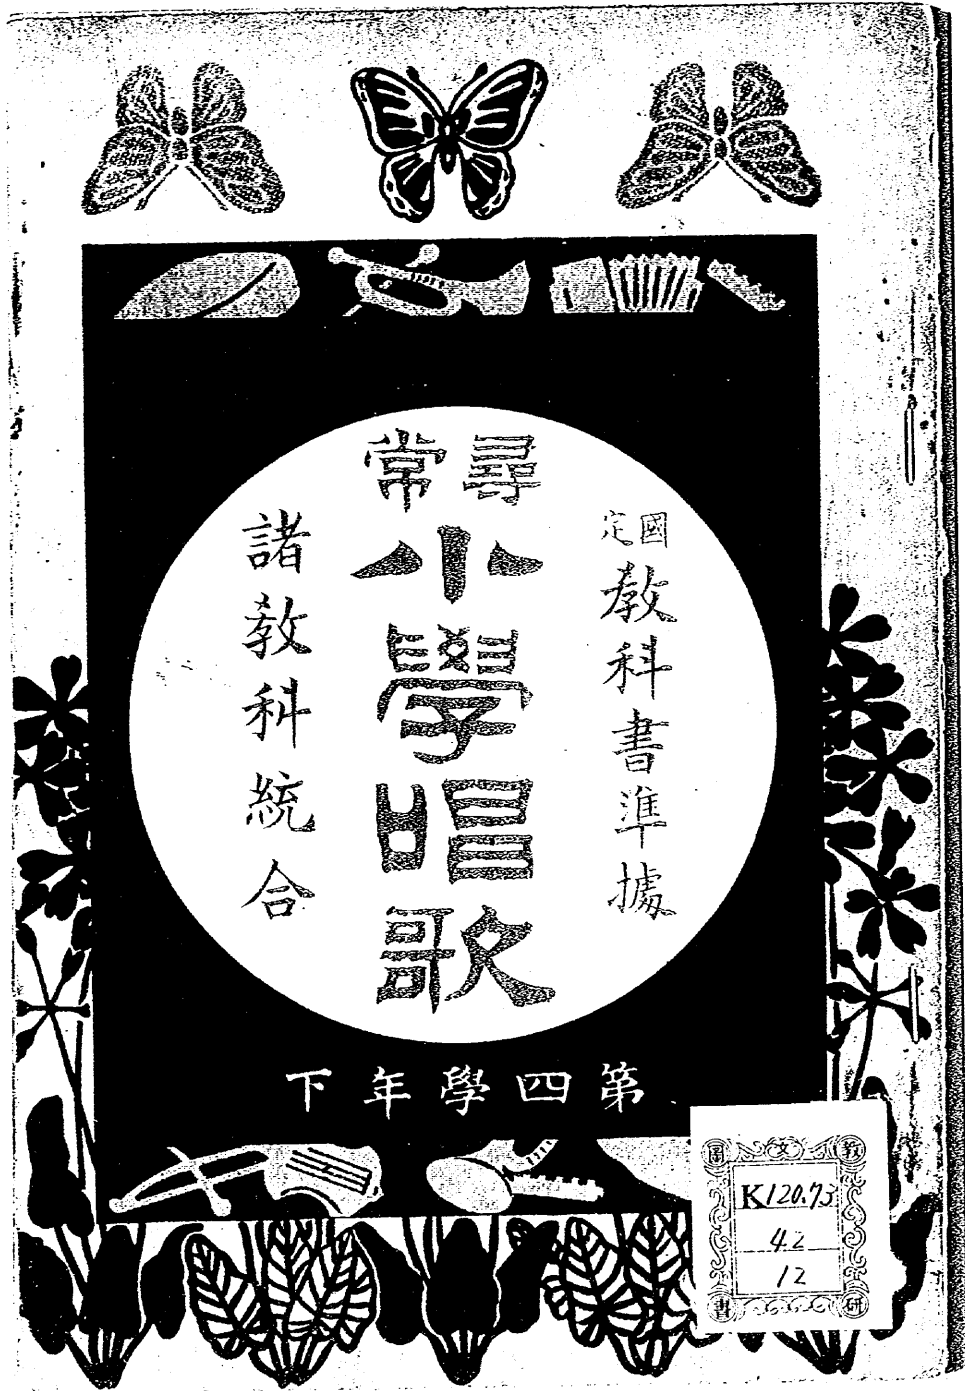 國定教科書準據
尋常小學唱歌
諸教科統合
第四學年下
圖文教
K120.73
42
12
書研